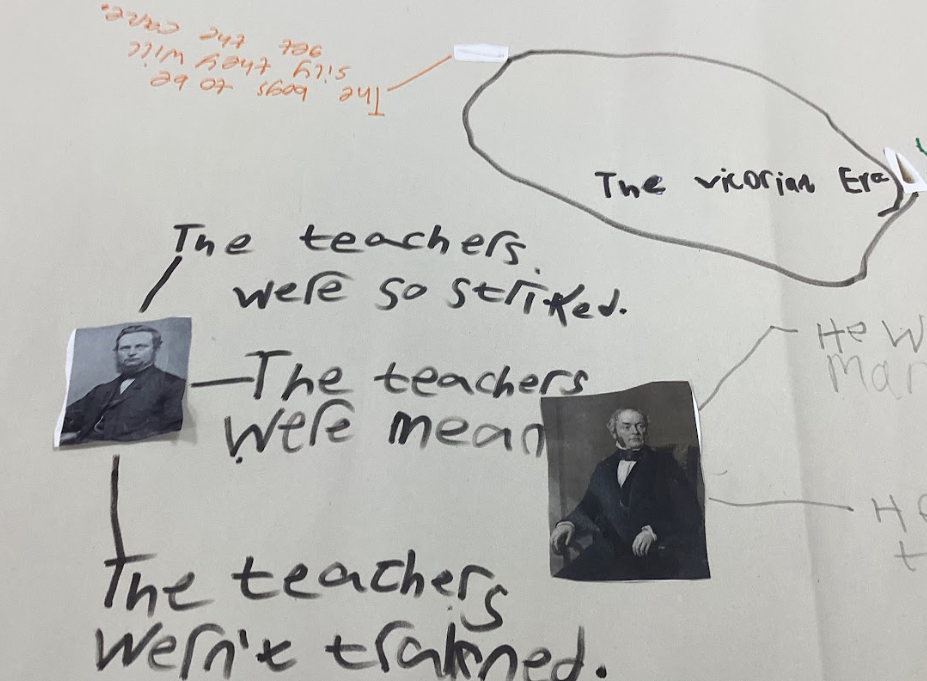 The boys to be
silly they will
get the cane.
The vicorian Era
The teachers.
were so striked.
The teachers
were mean
The teachers
wern't trakned.
He w
man
He
t